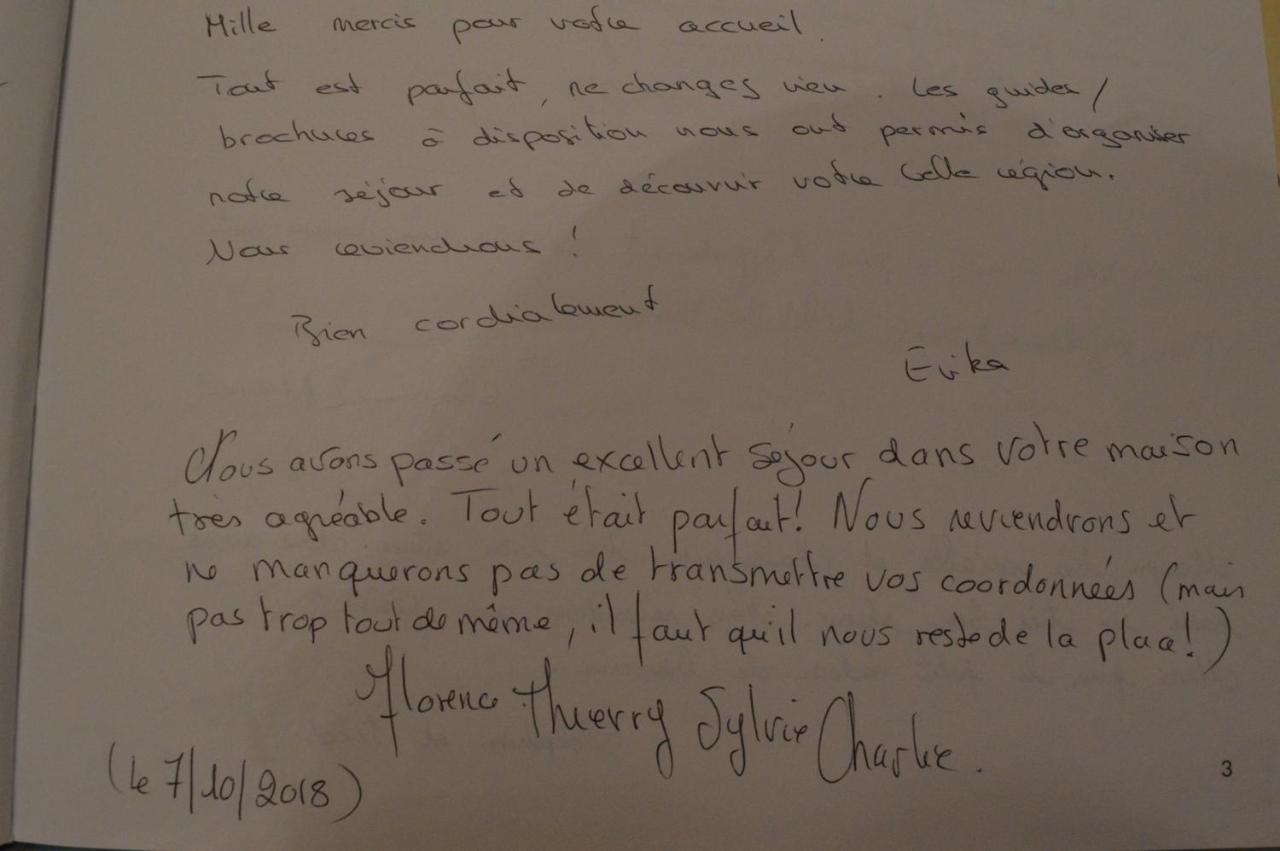 Mille mercis pour votre accueil.
Tout est parfait, ne changes rien. Les guides /
brochures à disposition nous ont permis d'organiser
notre séjour et de découvrir votre belle région.
Nous reviendrons !
Bien cordialement
Erika
Nous avons passé un excellent séjour dans votre maison
très agréable. Tout était parfait! Nous reviendrons et
ne manquerons pas de transmettre vos coordonnées (mais
pas trop tout de même, il faut qu'il nous reste de la place!)
Florence Thierry Sylvie Charlie.
(le 7/10/2018)
3